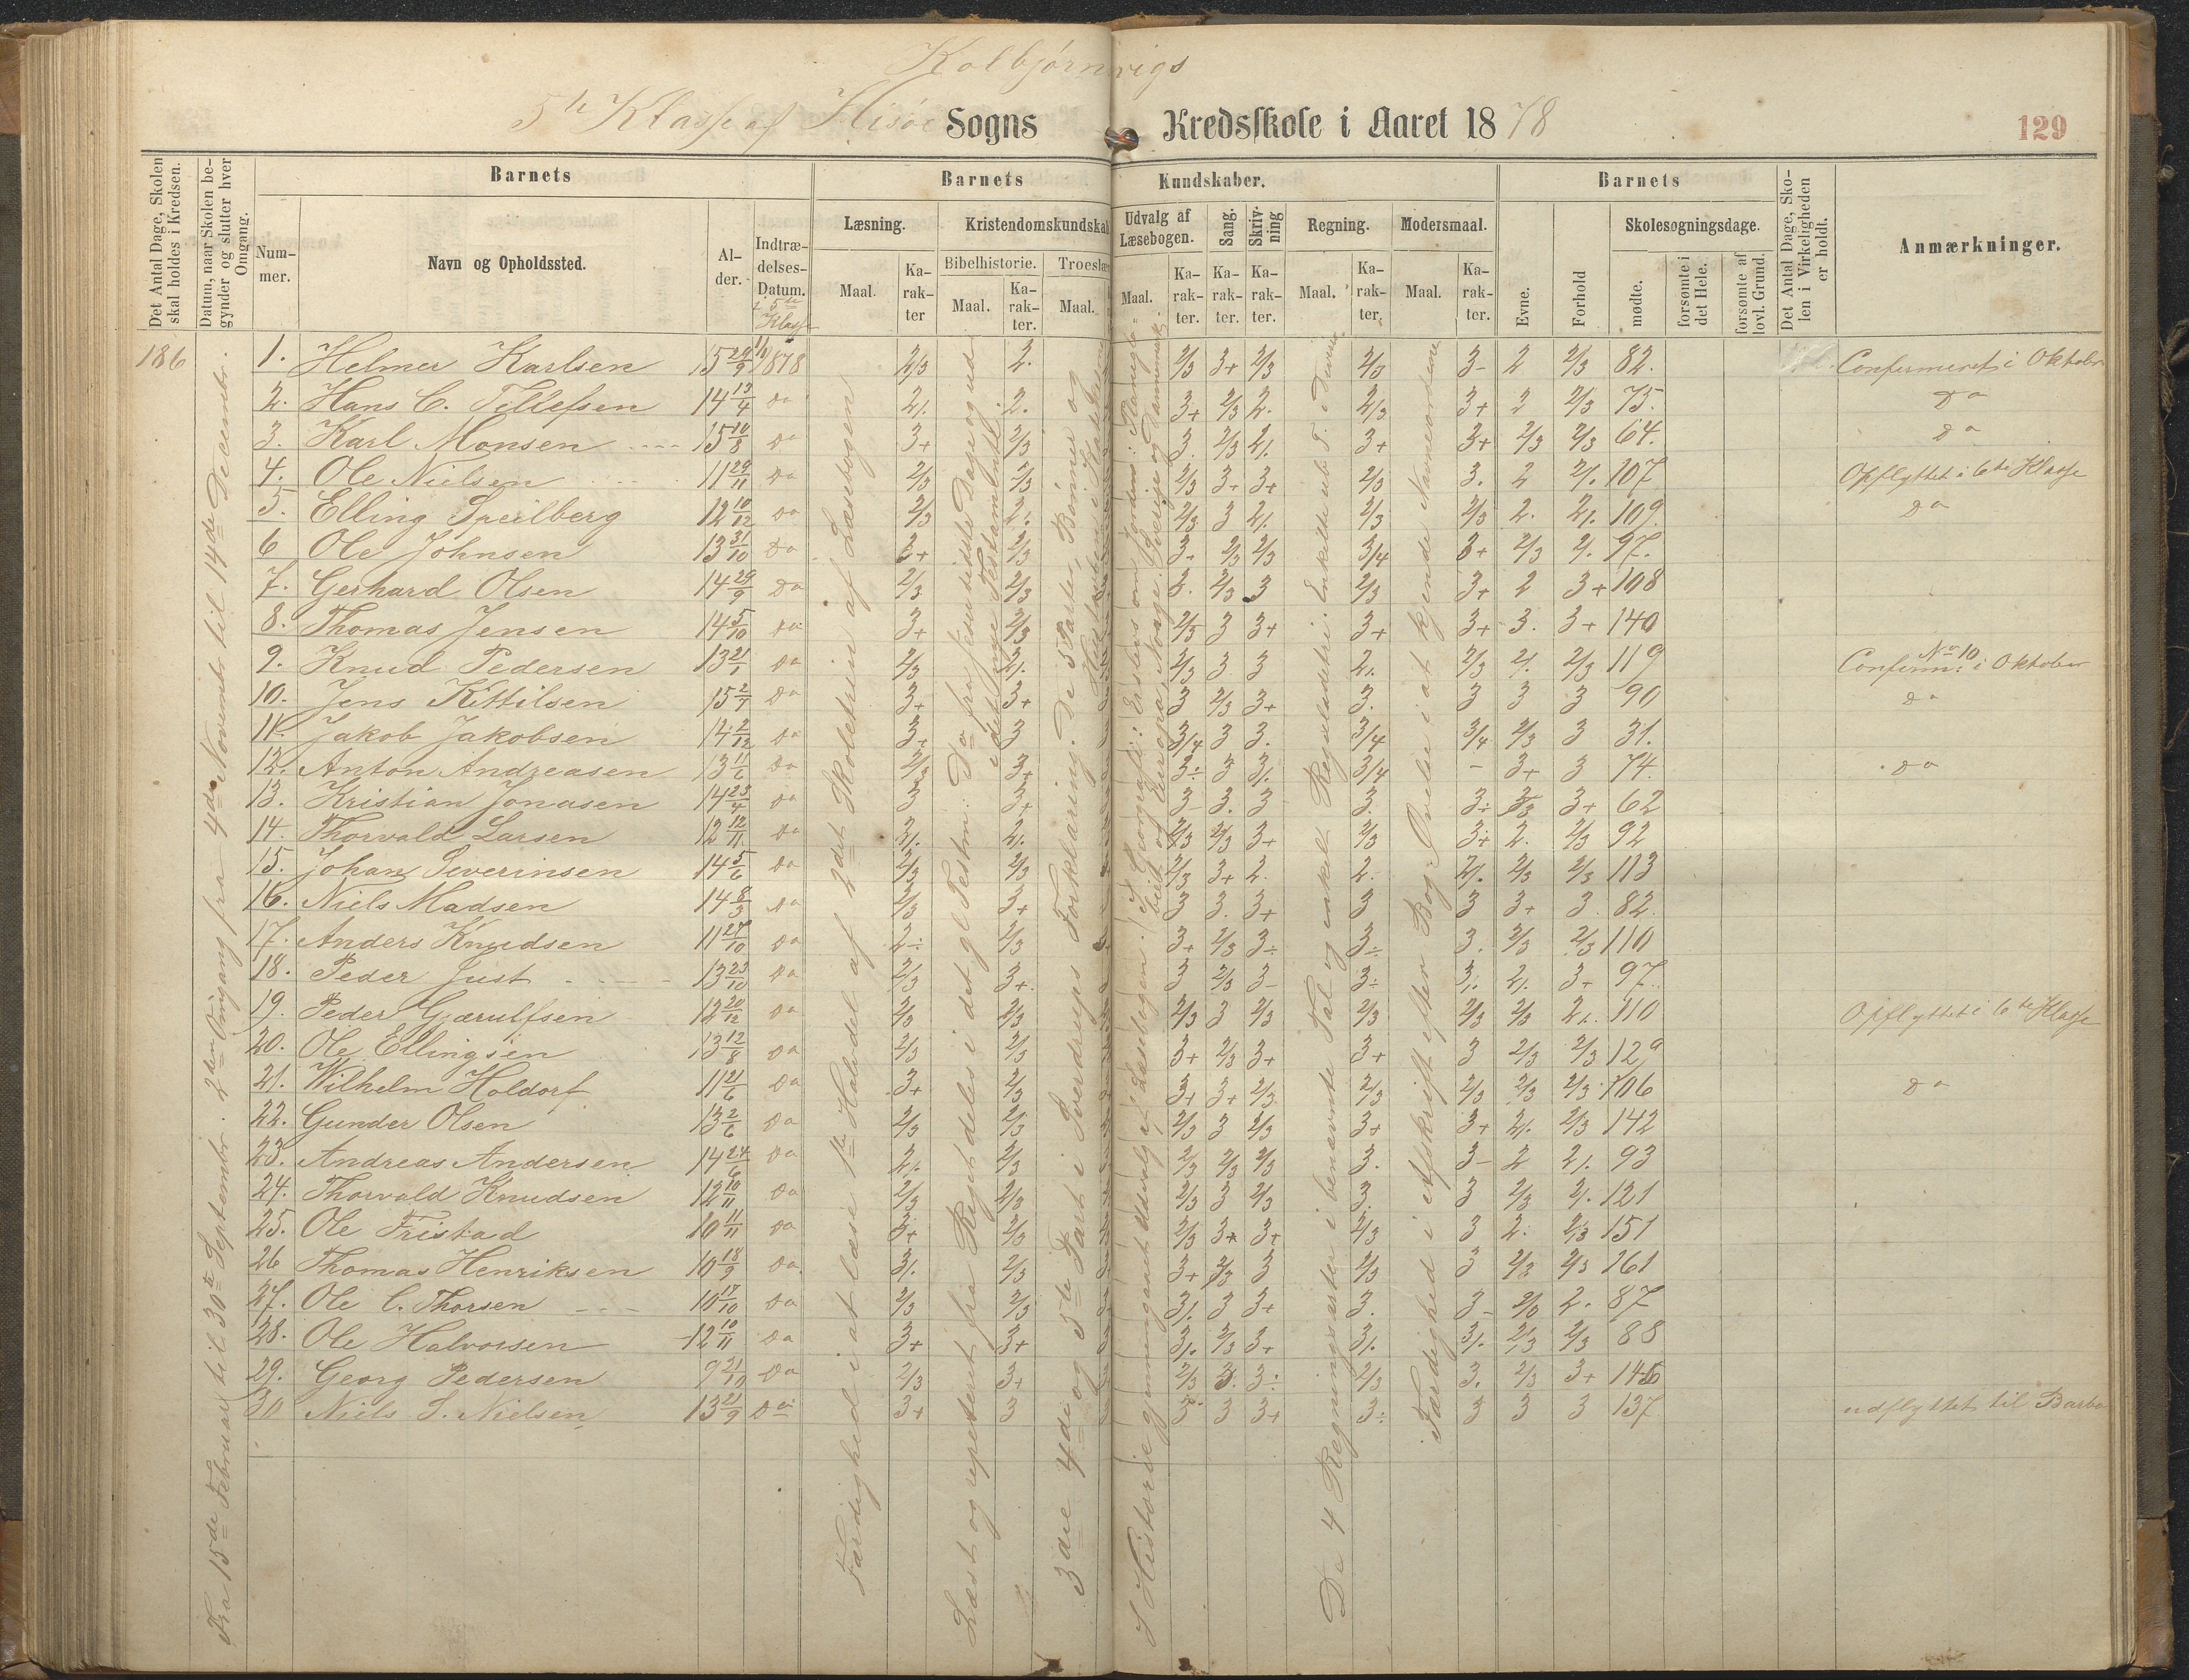 Kolbjørnsvigs
5te Klasse af Hisøe Sogns Kredsskole i Aaret 1878
129
Det Antal Dage, Skolen skal holdes i Kredsen.
Datum, naar Skolen begynder og slutter hver Omgang.
Barnets
Nummer.
Navn og Opholdssted.
Alder.
Indtrædelses-Datum.
i 5te Klasse
Barnets Kundskaber.
Læsning.
Kristendomskundskab
Bibelhistorie.
Troeslære
Udvalg af Læsebogen.
Sang.
Skrivning
Regning.
Modersmaal.
Maal.
Karakter
Maal.
Karakter.
Maal.
Maal.
Karakter.
Karakter.
Karakter.
Maal.
Karakter.
Maal.
Karakter.
Barnets
Evne.
Forhold
Skolesøgningsdage.
mødte.
forsømte i det Hele.
forsømte af lovl. Grund.
Det Antal Dage, Skolen i Virkeligheden er holdt.
Anmærkninger.
186
Fra 15de Februar til 30te Septembr. 2den Omgang fra 4de Novembr til 14de Decembr.
Færdighed i at læse 1ste Halvdel af 2det Skoletrin af Læsebogen
De 4 Regningsarter i benævnte Tal og enkelt Reguladetri.
Færdighed i Afskrift efter Bog. Øvelse i at kjende Navneordene
1. Helmer Karlsen 15 29/9 1/1 1878 2/3 2. 2/3 3+ 2/3 2/3 3- 2 2/3 82. Confirmeret i Oktober
2. Hans C. Tellefsen 14 13/4 do 2/. 2. 3+ 2/3 2. 2/3 3+ 2 2/3 75. Do
3. Karl Monsen 15 10/8 do 3+ 2/3 3. 2/3 2/. 3+ 3+ 2/3 2/3 64. do
4. Ole Nielsen 11 29/11 do 2/3 2/3 2/3 3+ 3+ 2/3 3. 2 2/. 107 Opflyttet i 6te Klasse
5. Elling Speilberg 12 10/12 do 2/3 2/. 2/3 3 2/. 2/3 2/3 2. 2/. 109. do
6 Ole Johnsen 13 31/10 do 3+ 2/3 3+ 2/3 2/3 3/4 3+ 2/3 2/. 97.
7. Gerhard Olsen 14 29/9 do 2/3 2/3 3. 2/3 3 2/3 3+ 2 3+ 108
8. Thomas Jensen 14 5/10 do 3+ 2/3 2/3 3 3+ 3+ 3+ 3. 3+ 140
9. Knud Pedersen 13 21/1 do 2/3 2/. 2/3 3 3 2/. 2/3 2/. 2/3 119 No 10 Confirm: i Oktober
10. Jens Kittilsen 15 2/7 do 3+ 3+ 3 2/3 3+ 3. 3 3 3 90 do
11. Jakob Jakobsen 14 2/12 do 3+ 3 3/4 3 3. 3/4 3/4 2/3 3 31.
12. Anton Andreasen 13 11/6 do 2/3 3+ 3÷ 3 3/. 3/4 - 3+ 3 74. do
13. Kristian Jonasen 14 23/4 do 3 3+ 3- 3. 3 3. 3÷ 3+ 62
14. Thorvald Larsen 12 12/11 do 2/. 2/. 2/3 2/3 3+ 2/3 3+ 2. 2/3 92
15. Johan Severinsen 14 5/6 do 2/3 2/3 2/3 3+ 2. 2. 2/. 2/3 2/3 113
16. Niels Madsen 14 8/3 do 2/3 3+ 3 3. 3+ 3 3 3+ 3. 82.
17. Anders Knudsen 11 27/10 do 2÷ 2/3 3+ 2/3 3÷ 3÷ 3. 2/3 2/3 110
18. Peder Just 13 23/10 do 2/3 3+. 3 2/3 3- 3÷ 3/. 2/. 3+ 97.
19. Peder Gjærulfsen 12 20/12 do 2/3 2/3 2/3 3 2/3 2/3 2/3 2/3 2/. 110 Opflyttet i 6te Klasse
20. Ole Ellingsen 13 12/8 do 2/3 2/3 3+ 2/3 3+ 3+ 3 2/3 2/3 129
21. Wilhelm Holdorf 11 21/6 do 3+ 2/3 3+ 3+ 2/3 2/3 2/3 2/3 2/3 106 do
22. Gunder Olsen 13 2/6 do 2/3 2/3 2/3 3 2/3 3+ 3+ 2/. 2/3 142
23. Andreas Andersen 14 24/6 do 2/. 2/3 2/3 2/3 2/3 3. 3- 2 2/. 93
24. Thorvald Knudsen 12 10/11 do 2/3 2/3 2/3 3 2/3 3. 3 2/3 2/. 121
25. Ole Fristad 10 11/11 do 3+ 2/3 2/3 3+ 3+ 2/3 3 2. 2/3 151
26 Thomas Henriksen 10 18/9 do. 3/. 2/3 3+ 3 2/3 3 2/3 2/3 161
27. Ole C. Thorsen 10 17/10 do 2/3 2/3 3/. 3 3+ 3. 3- 2/3 2. 87
28. Ole Halvorsen 12 10/11 do 3+ 3+ 3/. 2/3 3+ 3/. 3/. 2/3 2/3 88
29. Georg Pedersen 9 21/10 do 2/3 3+ 2/3 3. 3÷ 2/3 3. 2/3 3+
30 Niels S. Nielsen 13 21/9 do 3+ 3 3 3 3+ 3÷ 3 3 3 137. udflyttet til Barbo